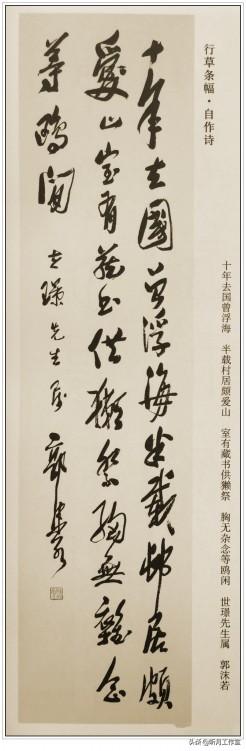 行草条幅·自作诗
十年去国曾浮海 半载村居颇爱山 室有藏书供獭祭 胸无杂念等鸥闲 世璟先生属 郭沫若
十年去國曾浮海半載邨居頗
愛山室有藏书供獺祭胸無雜念
等鷗閒 世璟先生属 郭沫若
头条@听月工作室